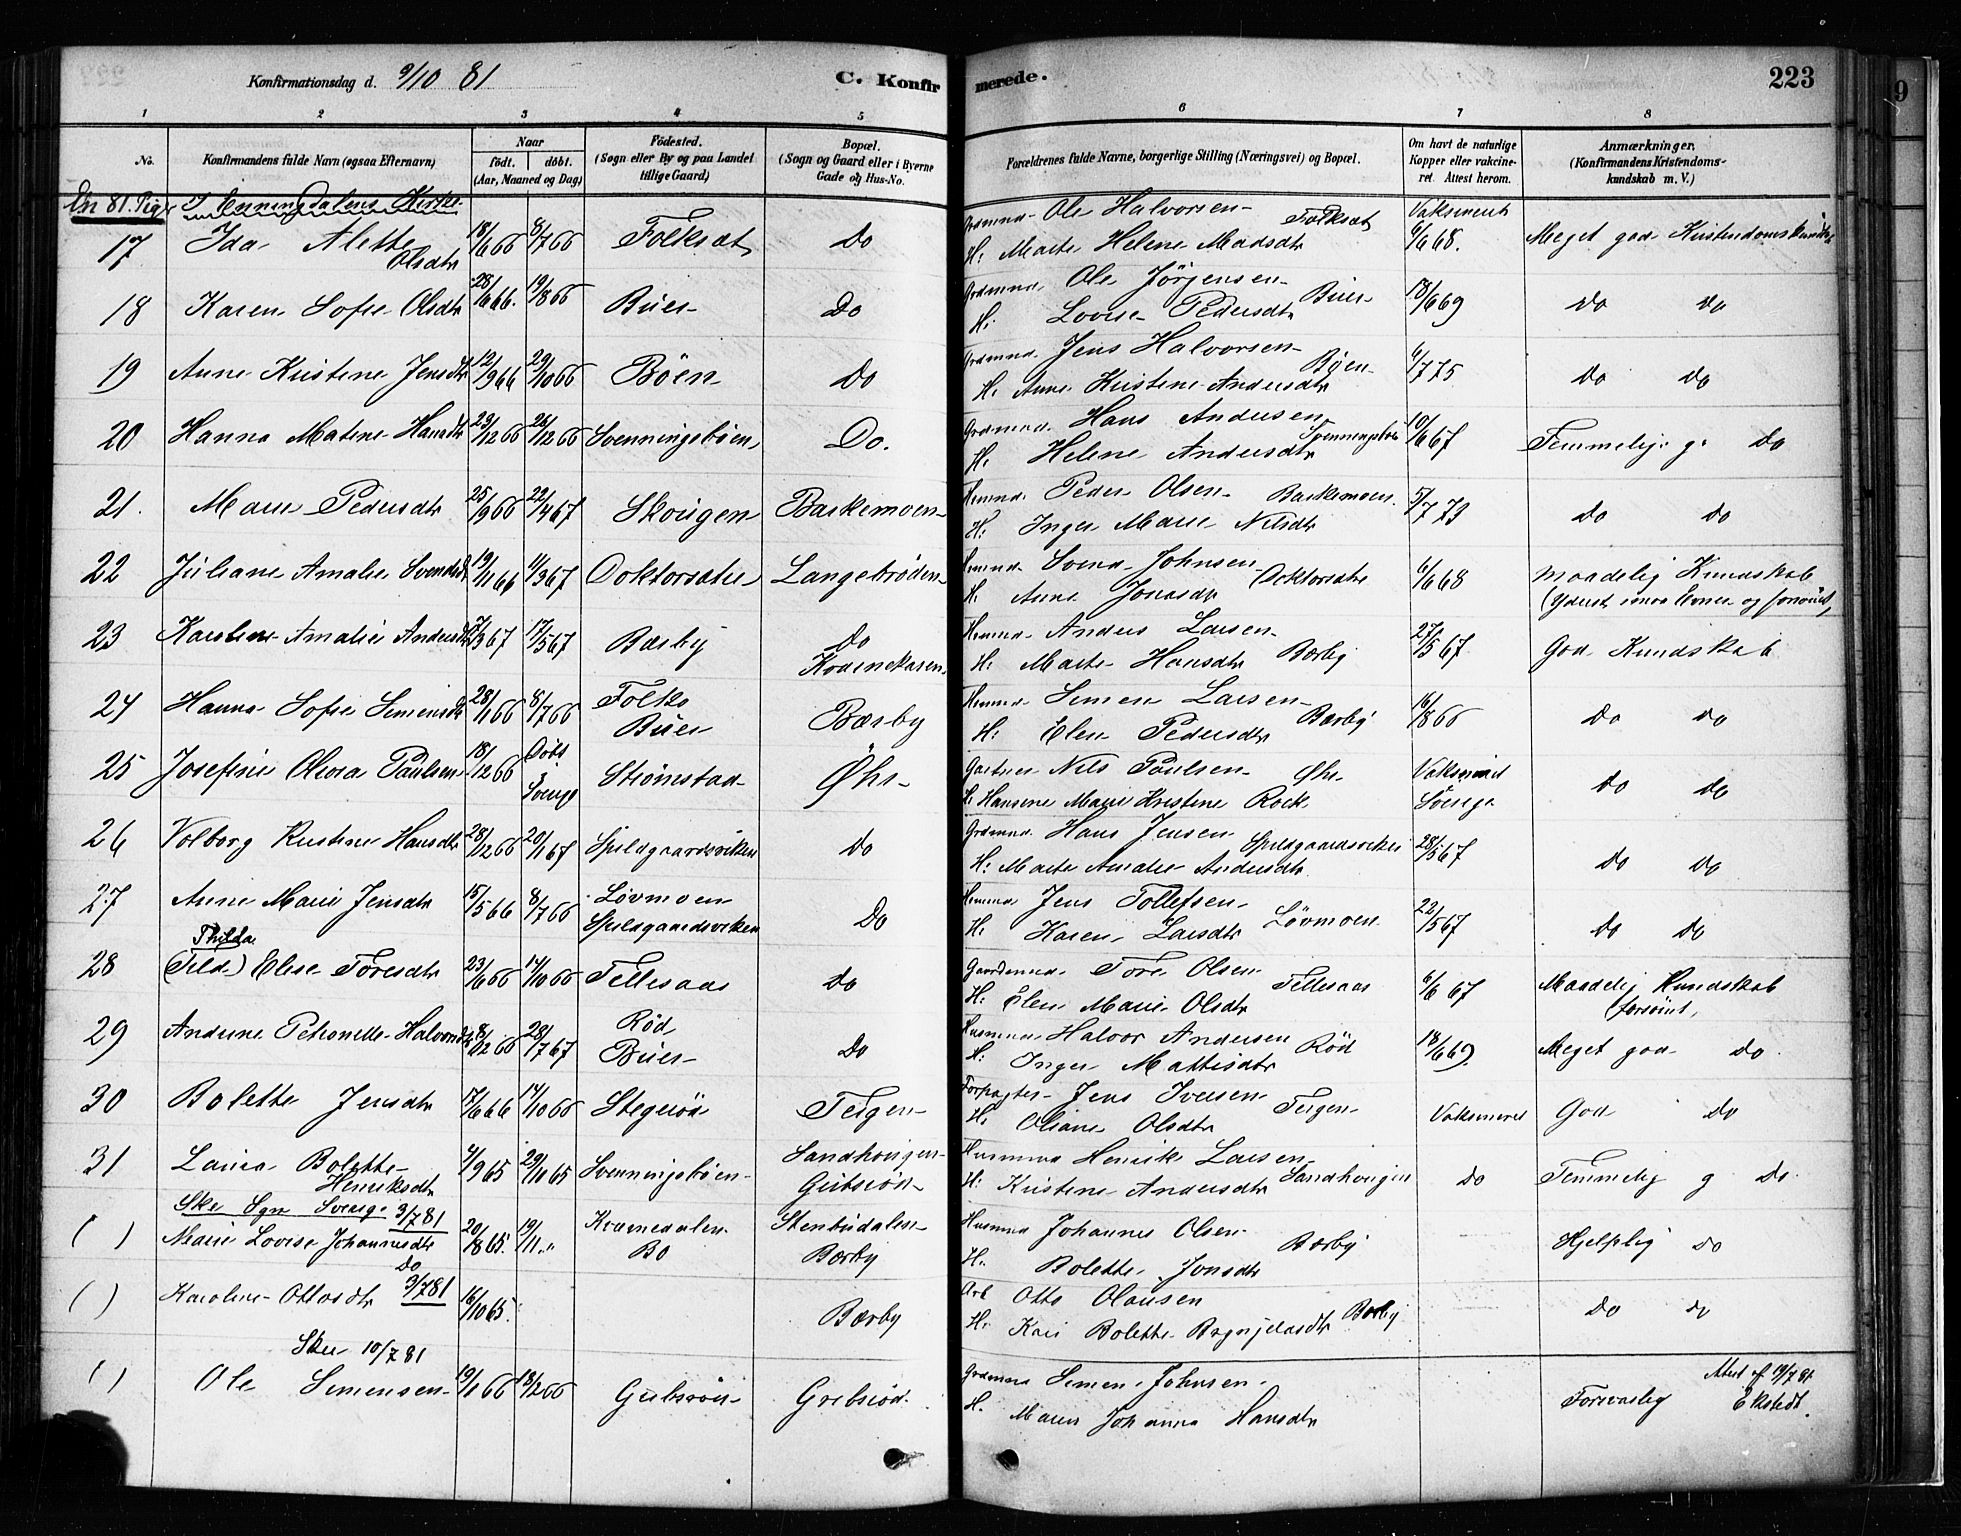 Konfirmationsdag d. 9/10 81
C. Konfir
merede.
223
1 2 3 4 5 6 7 8
No.
Konfirmandens fulde Navn (ogsaa Efternavn)
Naar
födt. döbt.
(Aar, Maaned og Dag)
Födested.
(Sogn eller By og paa Landet
tillige Gaard)
Bopæl.
(Sogn og Gaard eller i Byerne
Gade og Hus-No.
Forældrenes fulde Navne, borgerlige Stilling (Næringsvei) og Bopæl.
Om havt de naturlige
Kopper eller vakcine-
ret. Attest herom.
Anmærkninger.
(Konfirmandens Kristendoms-
kundskab m. V.)
81. Piger Enningdalens Kirke
17 Ida Alette Olsdtr 18/6 66 8/7 66 Folksat Do
Ole Halvorsen Folksat
H. Marte Helene Madsdtr
Vaksineret 6/6 68. Meget god Kristendomskundskab
18 Karen Sofie Olsdtr 28/6 66. 19/8 66 Buer Do
Ole Jörgensen Buer
H. Lovise Pedersdtr
18/6 69 Do Do
19 Anne Kristine Jensdtr 12/9 66 29/10 66 Böen Do
Jens Halvorsen Böen
H. Anne Kristine Andersdtr
6/7 75 Do Do
20 Hanna Matine Hansdtr 23/12 66 26/12 66 Svenningsböen Do.
Hans Andersen Svenningsböen
H. Helene Andersdtr
10/6 67 Temmelig g. Do
21. Marie Pedersdtr 25/9 66 22/4 67 Skougen Barkemoen
Peder Olsen Barkemoen.
H. Inger Marie Nilsdtr
5/7 73 Do Do
22 Juliane Amalie Svendsdtr 19/11 66 11/3 67 Doktorsætre Langebröden
Svend Johnsen Doktorsætre
H. Anne Jonasdtr
6/6 68 Maadelig Kundskab
(yderst smaa Evner og forsömt)
23 Karoline Amalie Andersdtr 17/5 67 Bærby Do
Kornekasen
Anders Larsen Bærby
H. Marte Hansdtr
27/5 67 God Kundskab
24 Hanna Sofie Simensdtr 28/1 66 8/7 66 Folks
Buer Bærby
Simen Larsen Bærby
H. Elen Pedersdtr
16/8 66 Do Do
25 Josefine Olivia Paulsen 18/12 66 Döbt i Sverige Strömstad Öhr
Gartner Nils Paulsen Öhr
H. Hansine Marie Kristine Rock
Vaksineret Sverige Do Do
26 Volborg Kristine Hansdtr 28/12 66 20/1 67 Spildgaardsviken Do
Hans Jensen Spildgaardsviken
H. Marte Amalie Andersdtr.
28/5 67 Do Do
27 Anne Marie Jensdtr 15/5 66 8/7 66 Lövmoen
Spildgaardsviken Do
Jens Tollefsen Lövmoen
H. Karen Larsdtr
22/5 67 Do Do
Thilda
28 (Tild.) Elise Toresdtr 23/6 66 14/10 66 Tellesaas Do
Gaardmand Tore Olsen Tellesaas
H. Elen Marie Olsdtr
6/6 67 Maadelig Kundskab
(forsömt)
29 Andrine Petronelle Halvorsdtr 8/12 66 28/7 67 Röd
Buer Do
Husmand Halvor Andersen Röd
H. Inger Mattisdtr
18/6 69. Meget god Do
30 Bolette Jensdtr 17/6 66 14/10 66 Stegeröd Teigen
Forpagter Jens Iversen Teigen
H. Oliane Olsdtr
Vaksineret God Do
31 Laura Bolette
Henriksdtr 4/9 65 29/10 65 Svenningsböen Sandhougen
Gubsröd
Husmand Henrik Larsen Sandhougen
H. Kristine Andersdtr
Do Temmelig g Do
Ske Sgn Sverige 3/7 81
( ) Marie Lovise Johannesdtr 20/8 65. 19/11 „ Kornedalen
Bo Stenbudalen
Bærby
Husmand Johannes Olsen Bærby
H. Bolette Jonsdtr
Hjelplig Do
Do 3/7 81
( ) Karoline Ottosdtr 16/10 65. Bærby
Arb Otto Olausen Bærby
H. Kari Bolette
Do Do
Skee 10/7 81
( ) Ole Simensen 19/1 66 18/2 66 Gubsröd Grebsröd.
Simen Johnsen
H. Maren Johanna Hansdtr
Forsvarlig Attest af 19/7 81
Ekstedt.